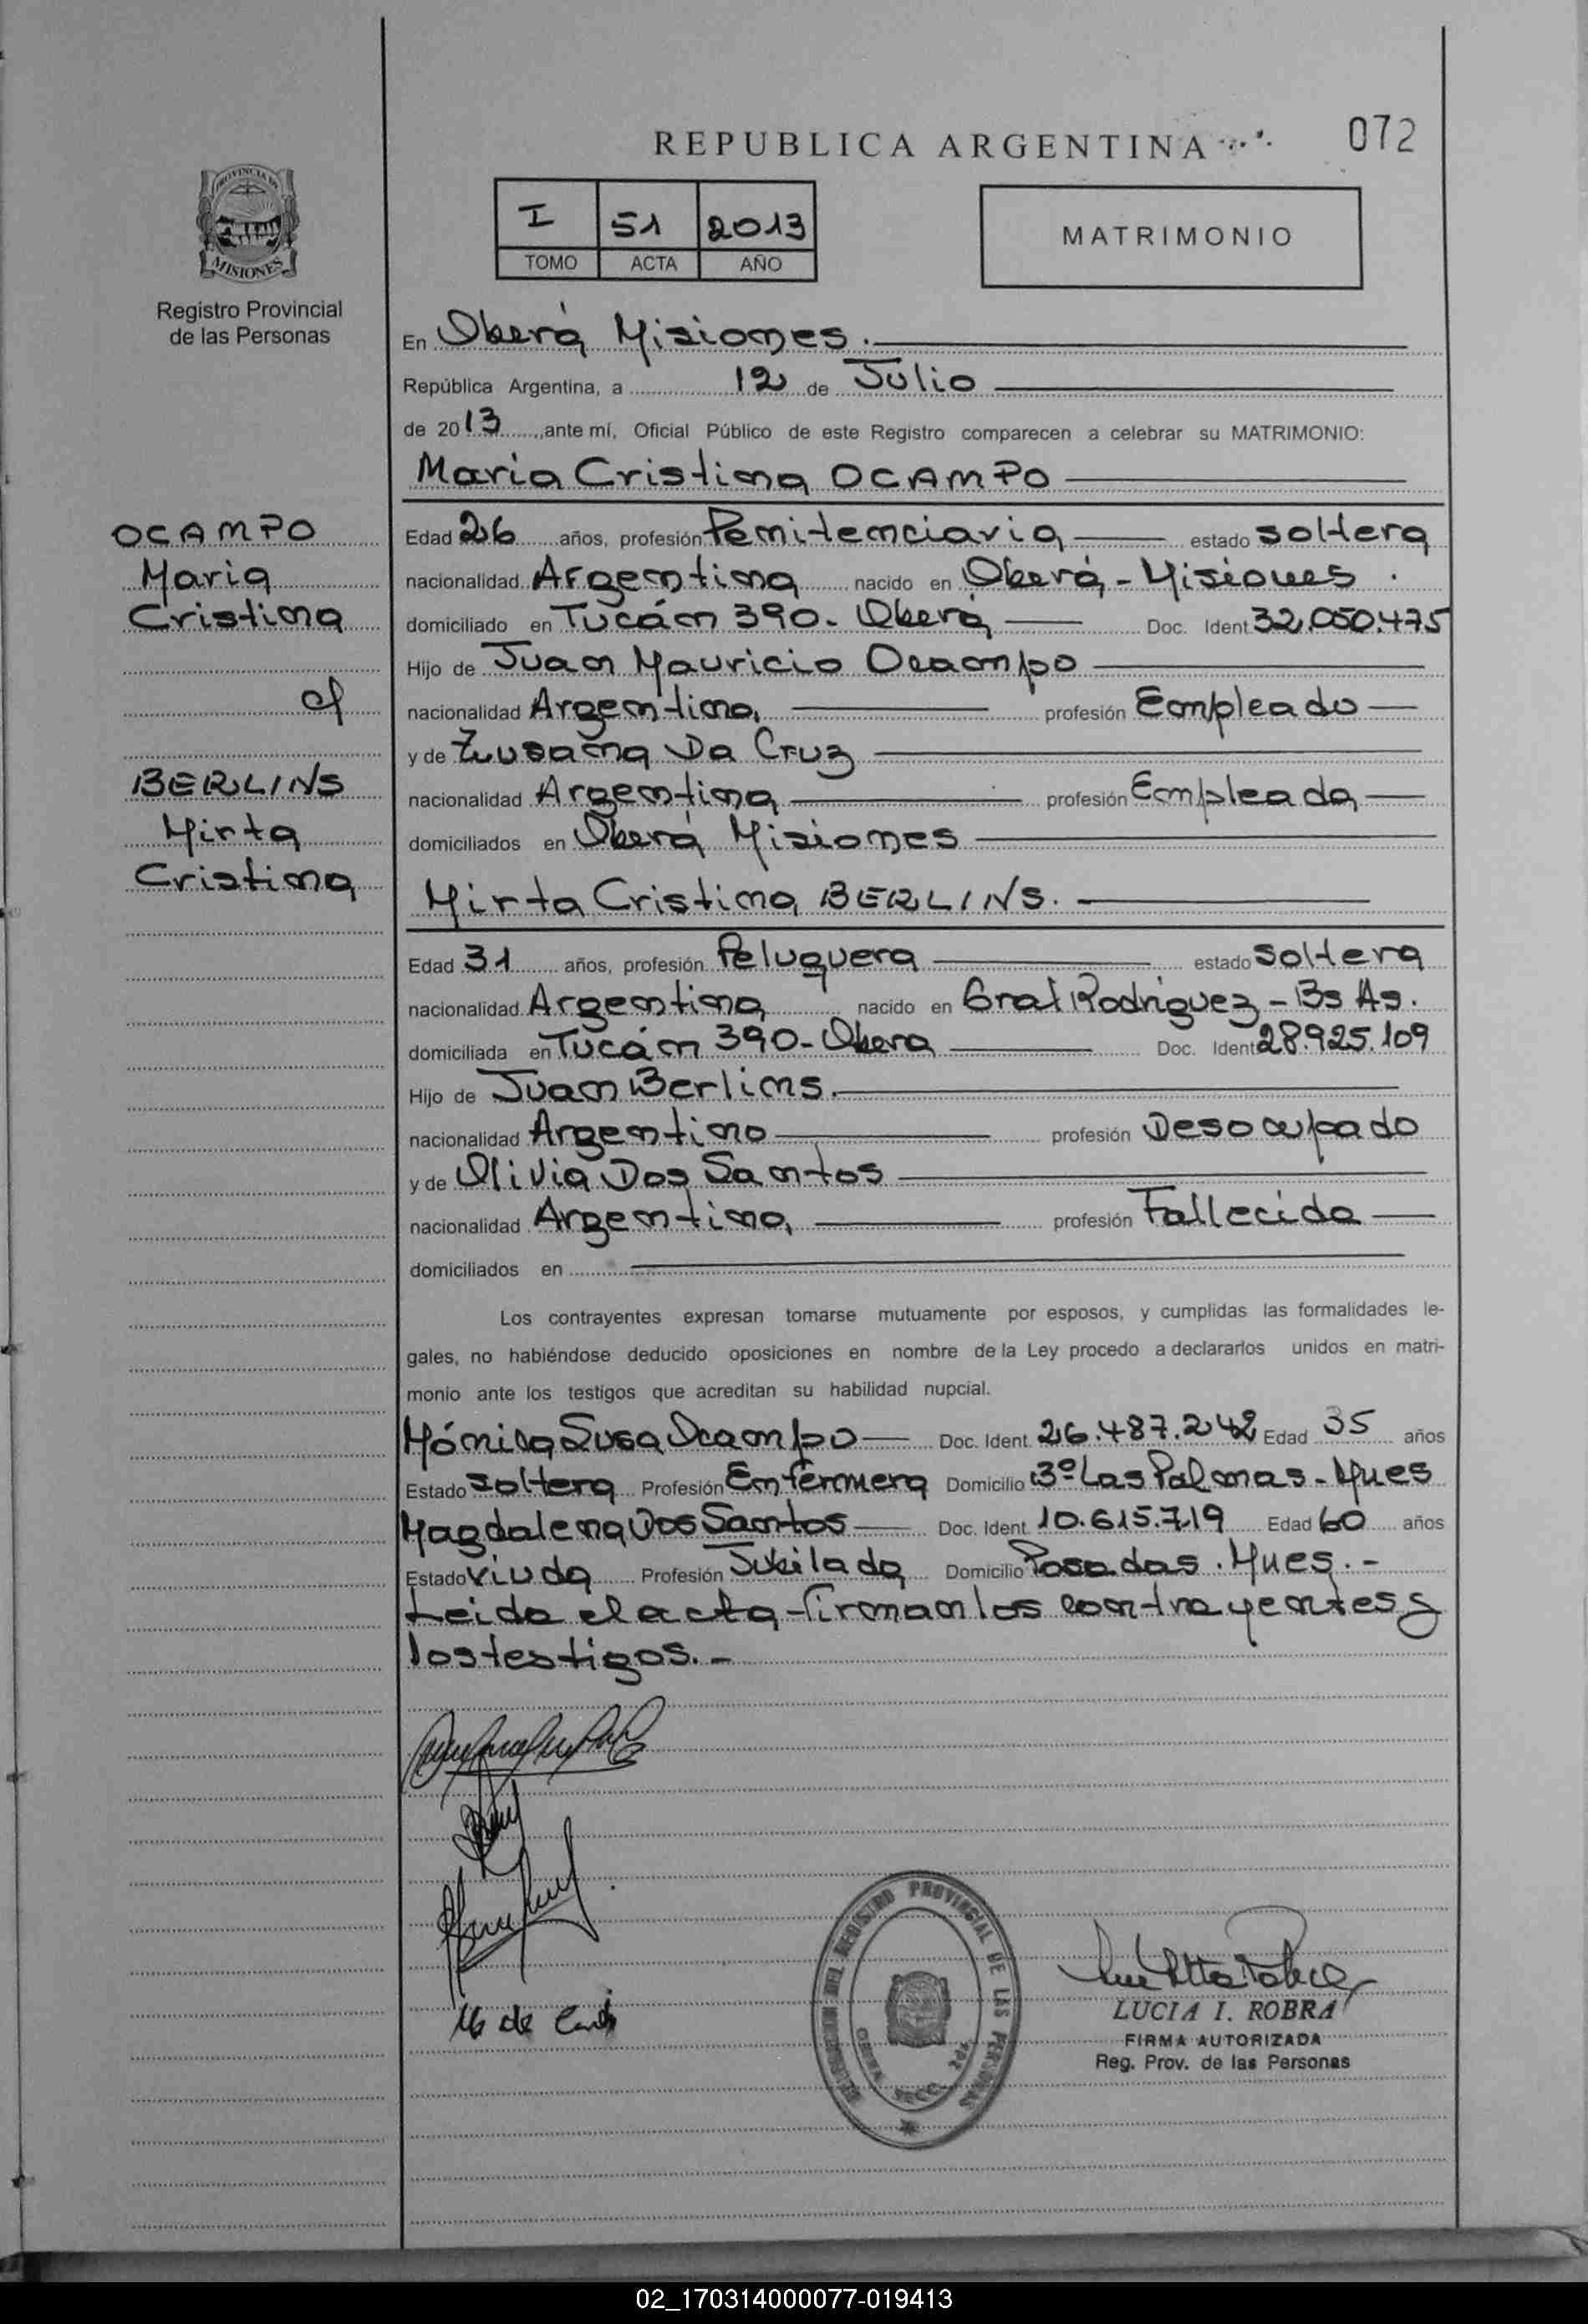 REPUBLICA ARGENTINA
072
PROVINCIA DE
MISIONES
Registro Provincial
de las Personas
I 51 2013
TOMO ACTA AÑO
MATRIMONIO
En Oberá Misiones.
República Argentina, a 12 de Julio
de 2013, ante mí, Oficial Público de este Registro comparecen a celebrar su MATRIMONIO:
Maria Cristina OCAMPO
OCAMPO
Maria
Cristina
c/
BERLINS
Mirta
Cristina
Edad 26 años, profesión Penitenciaria estado soltera
nacionalidad Argentina nacido en Oberá - Misiones.
domiciliado en Tucán 390 - Oberá Doc. Ident. 32.050.475
Hijo de Juan Mauricio Ocampo
nacionalidad Argentino, profesión Empleado
y de Zusana Da Cruz
nacionalidad Argentina profesión Empleada
domiciliados en Oberá Misiones
Mirta Cristina BERLINS.
Edad 31 años, profesión Peluquera estado soltera
nacionalidad Argentina nacido en Gral Rodriguez - Bs As.
domiciliada en Tucán 390 - Obera Doc. Ident 28.925.109
Hijo de Juan Berlins.
nacionalidad Argentino profesión Desocupado
y de Olivia Dos Santos
nacionalidad Argentina, profesión Fallecida
domiciliados en
Los contrayentes expresan tomarse mutuamente por esposos, y cumplidas las formalidades le-
gales, no habiéndose deducido oposiciones en nombre de la Ley procedo a declararlos unidos en matri-
monio ante los testigos que acreditan su habilidad nupcial.
Mónica Susa Ocampo Doc. Ident. 26.487.242 Edad 35 años
Estado soltera Profesión Enfermera Domicilio Bº Las Palmas - Mnes
Magdalena Dos Santos Doc. Ident. 10.615.719 Edad 60 años
Estado viuda Profesión Jubilada Domicilio Posadas. Mnes. -
Leida el acta firman los contrayentes y
los testigos. -
DEL REGISTRO PROVINCIAL DE LAS PERSONAS
LUCIA I. ROBRA
FIRMA AUTORIZADA
Reg. Prov. de las Personas
02_170314000077-019413